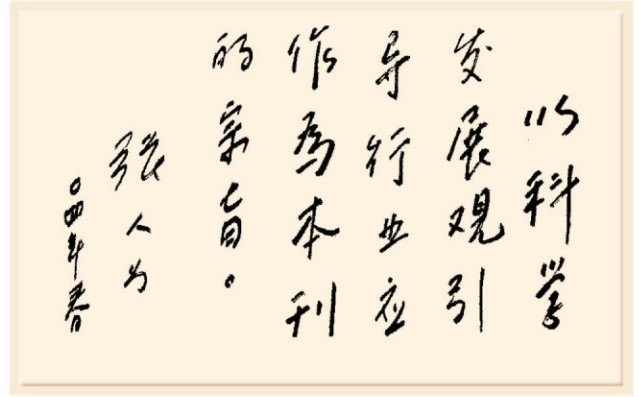 以科学
发展观引
导行业应
作為本刊
的宗旨。
张人为
〇四年春